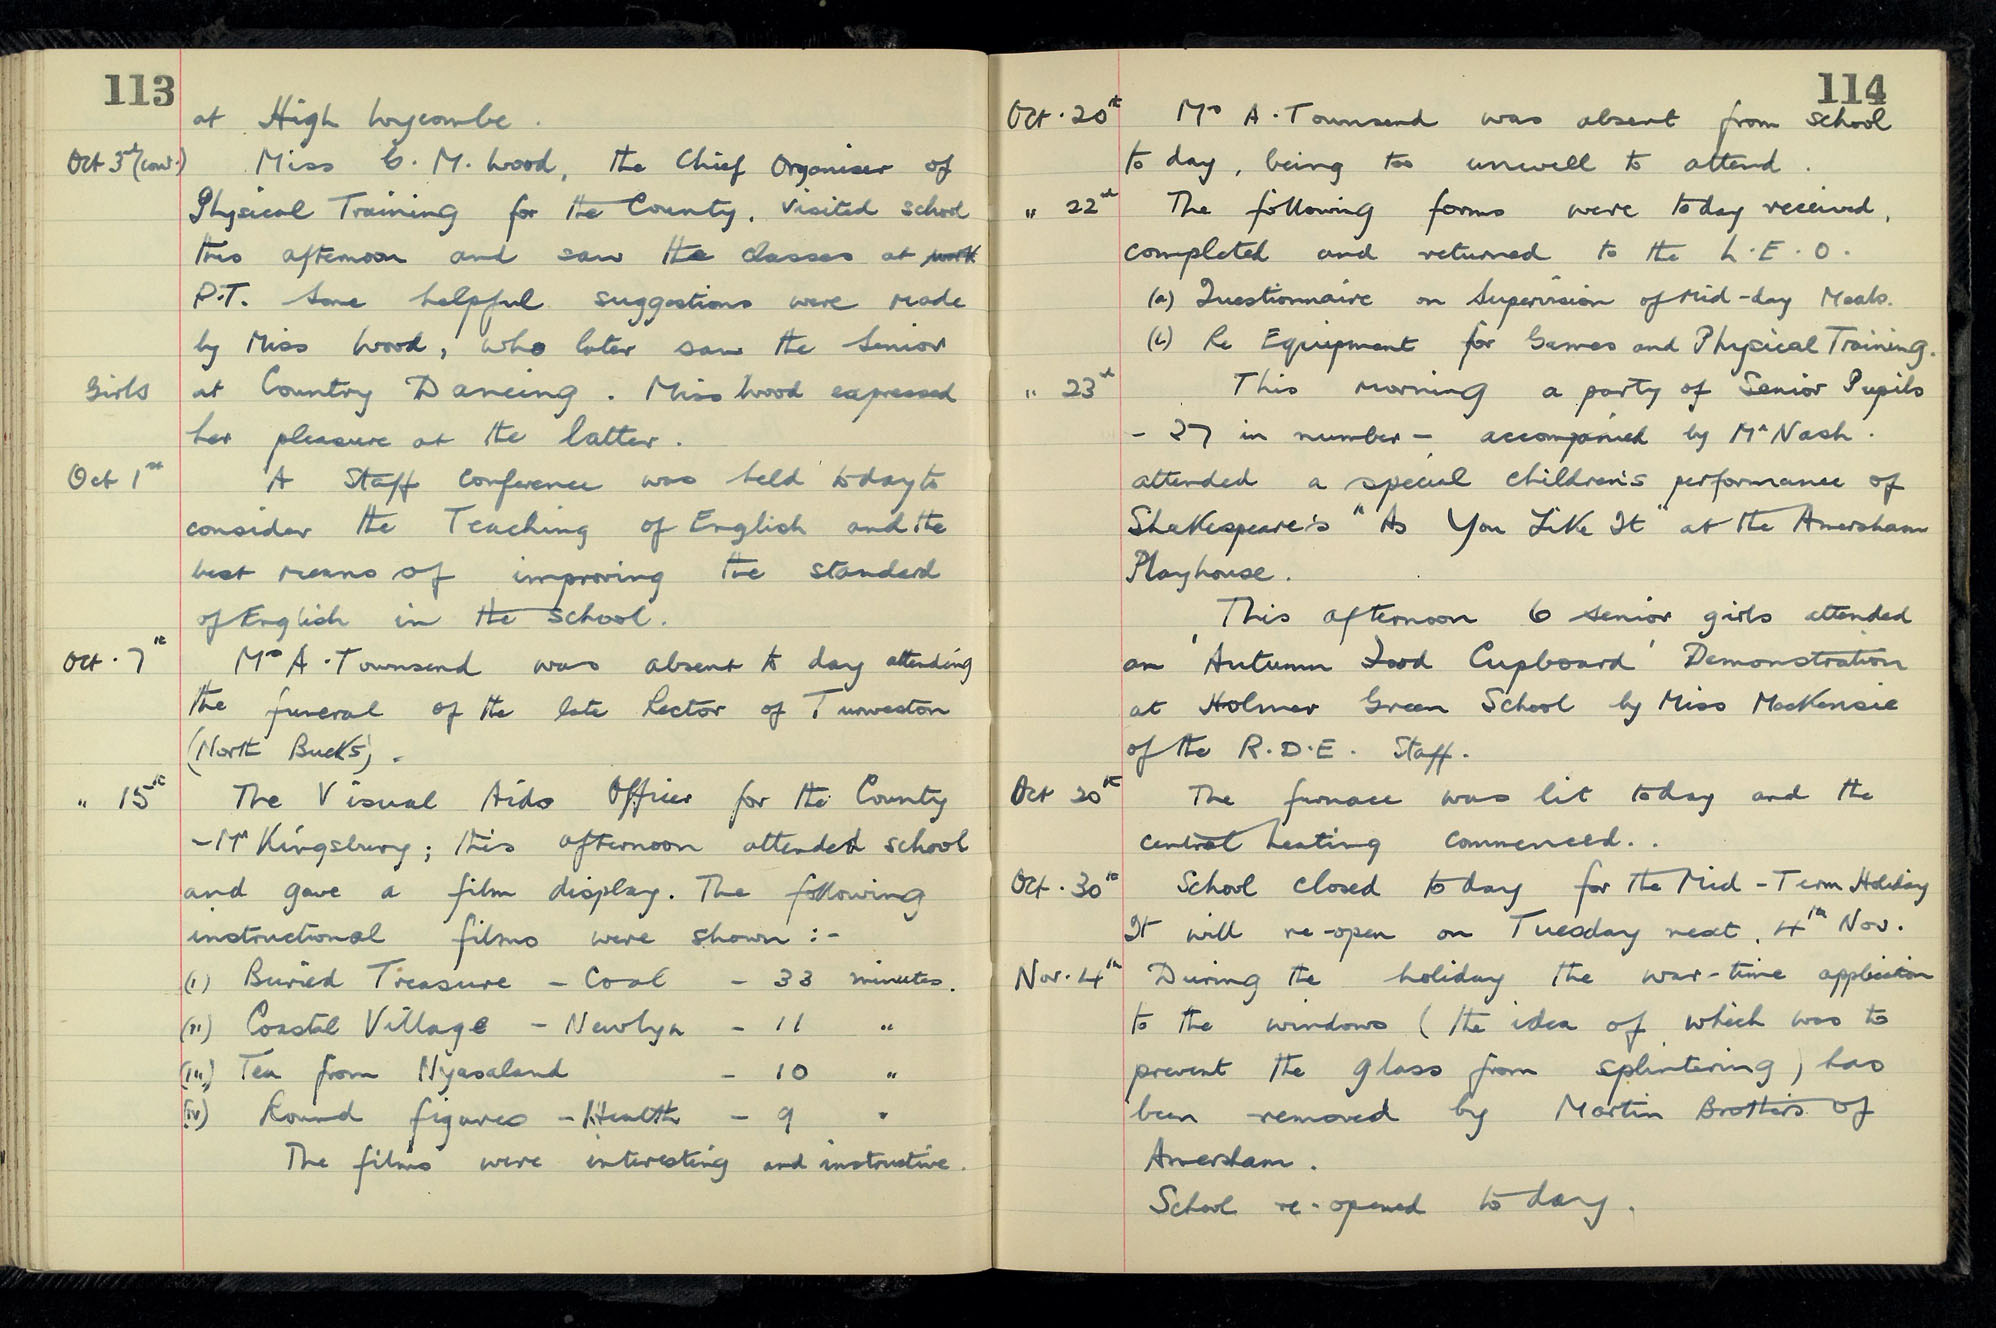 113
at High Wycombe.
Oct 3rd (cont.) Miss C. M. Wood, the Chief Organiser of
Physical Training for the County, visited school
this afternoon and saw the classes at work
P.T. Some helpful suggestions were made
by Miss Wood, who later saw the Senior
Girls at Country Dancing. Miss Wood expressed
her pleasure at the latter.
Oct 1st A Staff Conference was held today to
consider the Teaching of English and the
best means of improving the standard
of English in the school.
Oct. 7th Mrs A. Townsend was absent to day attending
the funeral of the late Rector of Turweston
(North Bucks).
" 15th The Visual Aids Officer for the County
- Mr Kingsbury; this afternoon attended school
and gave a film display. The following
instructional films were shown :-
(i) Buried Treasure - Coal - 33 minutes.
(ii) Coastal Village - Newlyn - 11 "
(iii) Tea from Nyasaland - 10 "
(iv) Round figures - Health - 9 "
The films were interesting and instructive.
114
Oct. 20th Mrs A. Townsend was absent from school
to day, being too unwell to attend.
" 22nd The following forms were today received,
completed and returned to the L.E.O.
(a) Questionnaire on Supervision of Mid-day Meals.
(b) Re Equipment for Games and Physical Training.
" 23rd This morning a party of Senior Pupils
- 27 in number - accompanied by Mr Nash.
attended a special children's performance of
Shakespeare's "As You Like It" at the Amersham
Playhouse.
This afternoon 6 senior girls attended
an 'Autumn Food Cupboard' Demonstration
at Holmer Green School by Miss MacKensie
of the R.D.E. Staff.
Oct 30th The furnace was lit today and the
central heating commenced..
Oct. 30th School closed today for the Mid-Term Holiday
It will re-open on Tuesday next, 4th Nov.
Nov. 4th During the holiday the war-time application
to the windows (the idea of which was to
prevent the glass from splintering) has
been removed by Martin Brothers of
Amersham.
School re-opened to day.